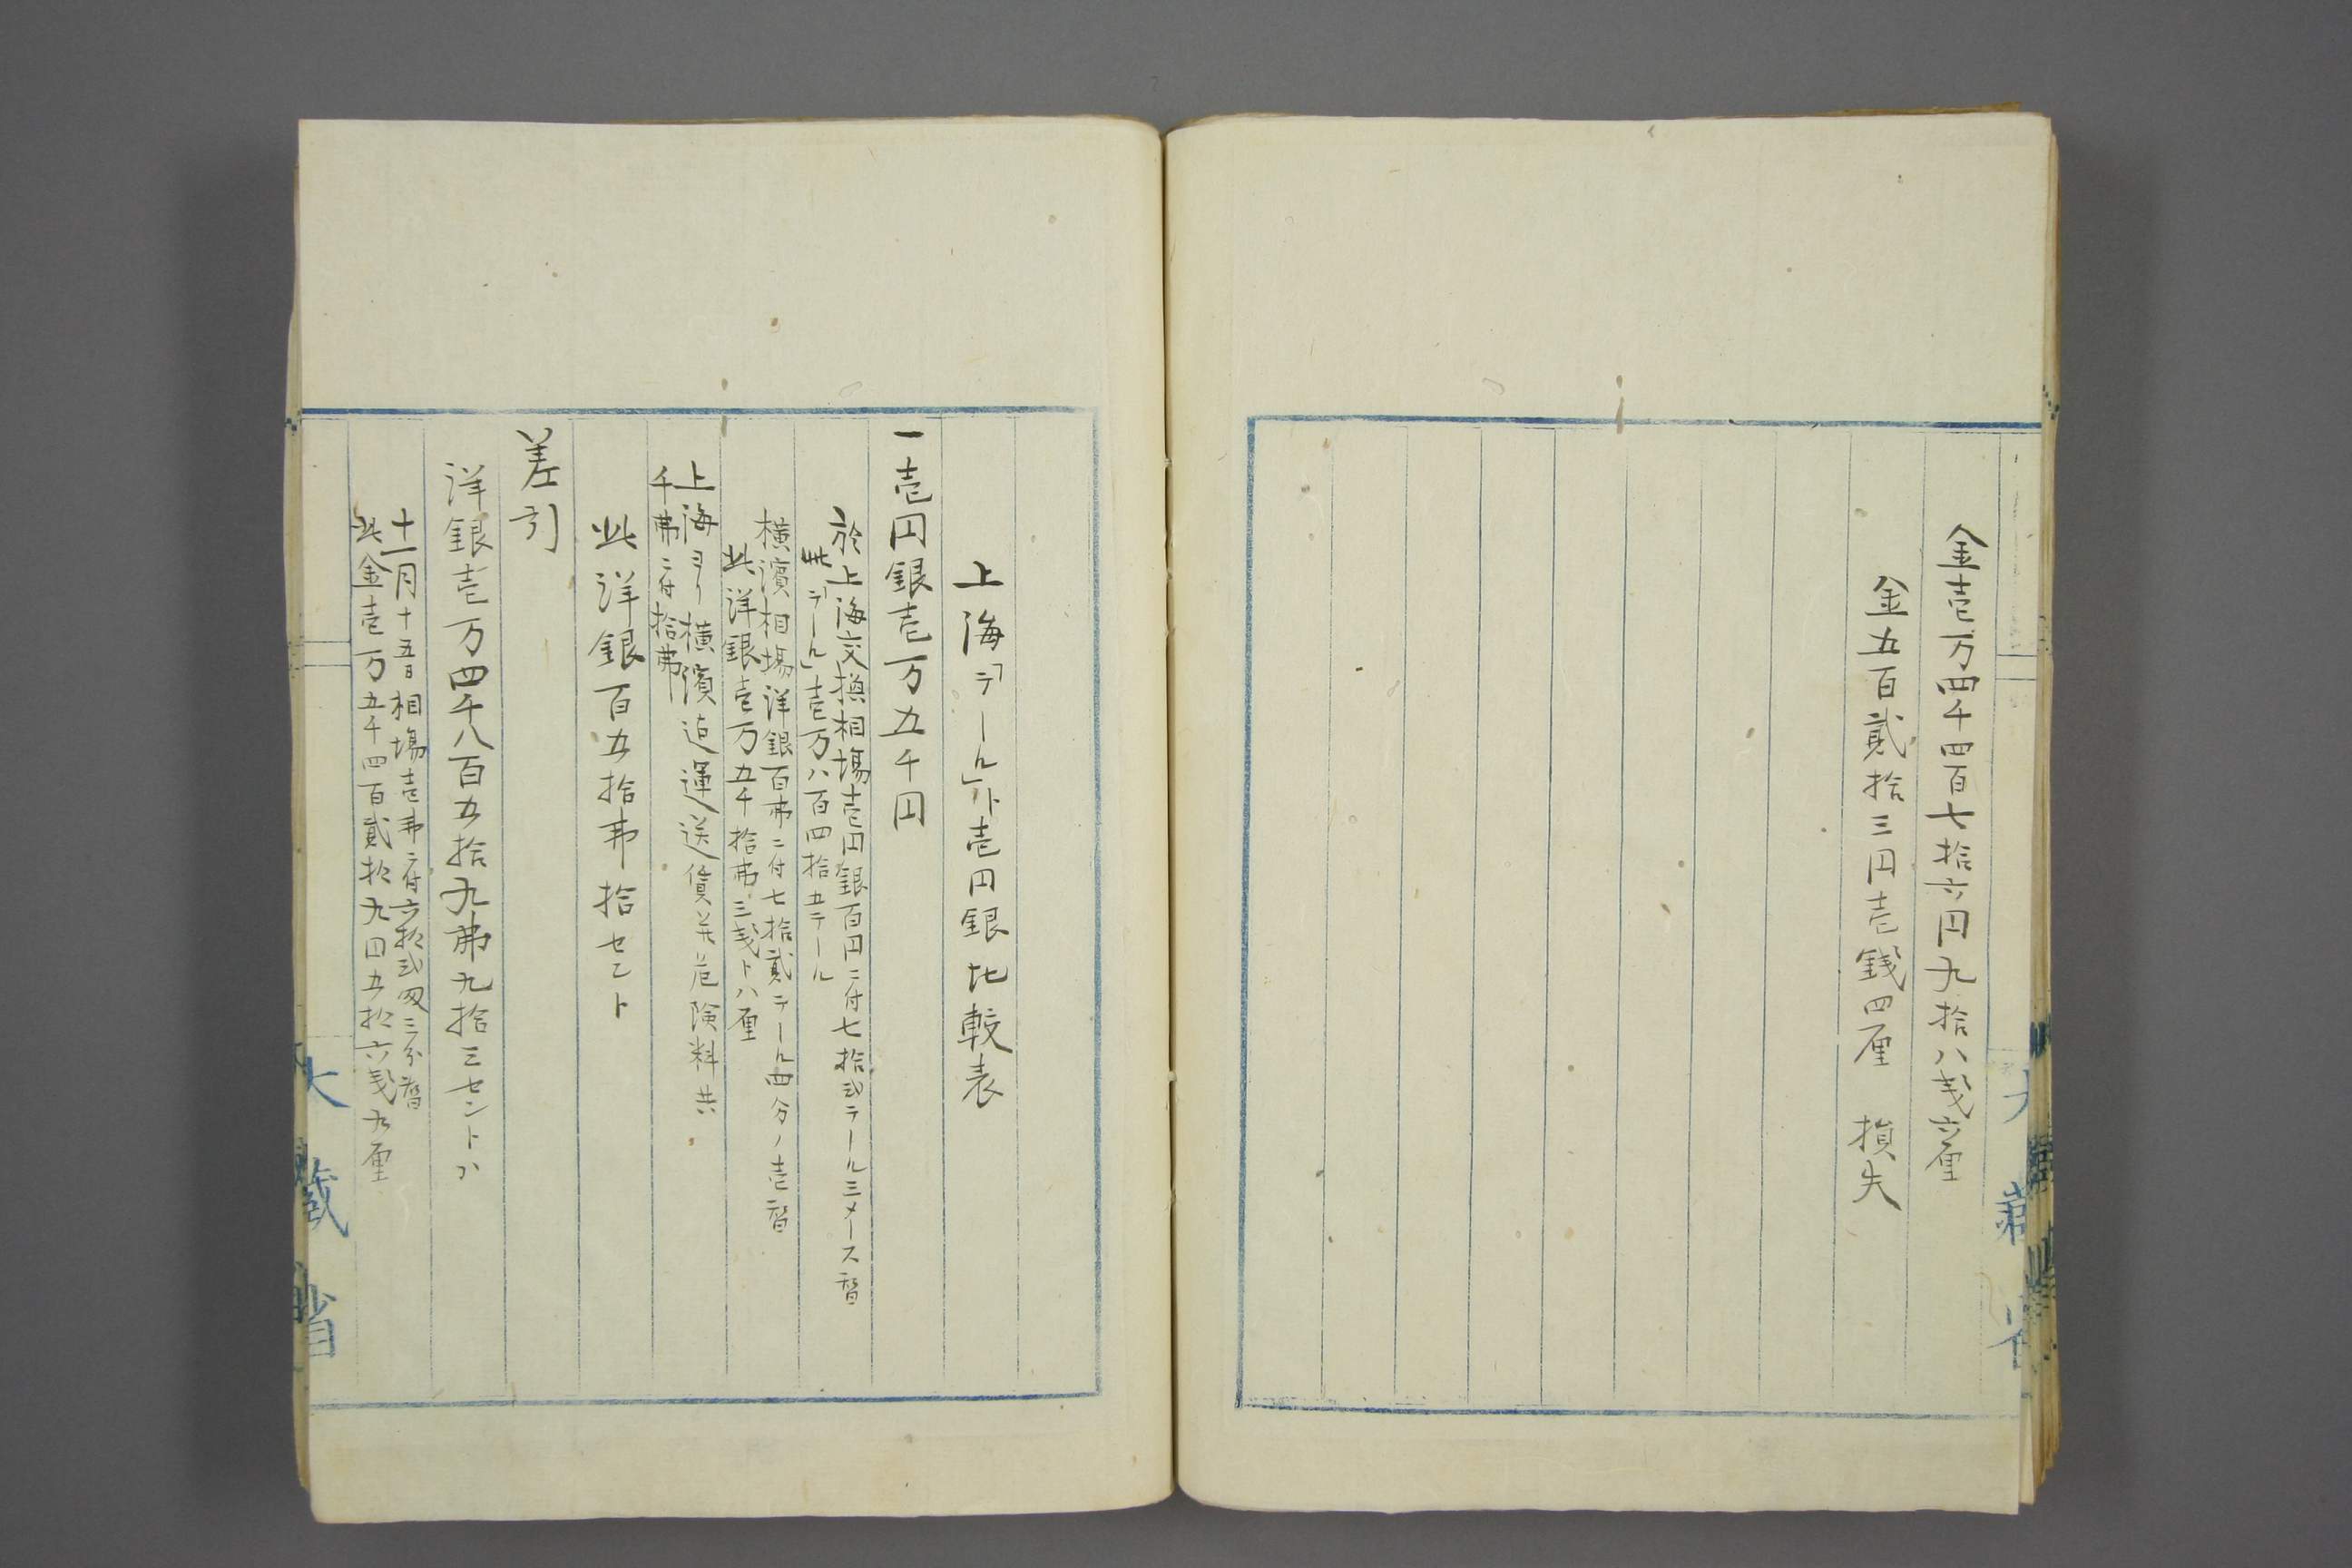 金壱万四千四百七拾六円九拾八戋六厘
金五百貳拾三円壱錢四厘　損失
大藏省
上海「テール」ト壱円銀比較表
一壱円銀壱万五千円
於上海交換相場壱円銀百円ニ付七拾弐テール三メース替
此「テール」壱万八百四拾五テール
横濱相場洋銀百弗ニ付七拾貳テール四分ノ壱替
此洋銀壱万五千拾弗三戋ト八厘
上海ヨリ横濱迠運送賃并危険料共
千弗ニ付拾弗
此洋銀百五拾弗拾セント
差引
洋銀壱万四千八百五拾九弗九拾三セントハ
十一月十五日相場壱弗ニ付六拾弐匁三分替
此金壱万五千四百貳拾九円五拾六戋九厘
大藏省